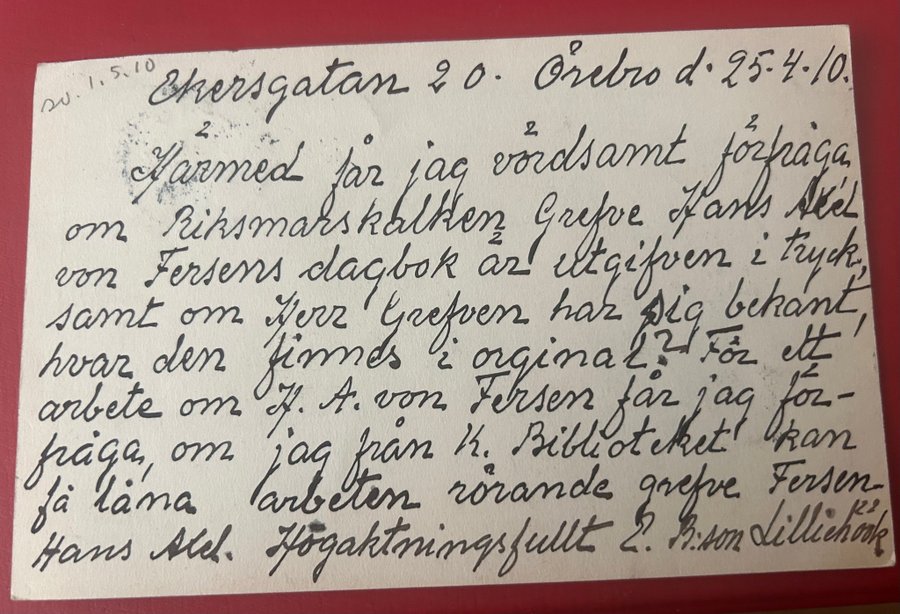 sv. 1.5.10
Ekersgatan 20. Örebro d. 25.4.10.
Härmed får jag vördsamt förfråga,
om Riksmarskalken Grefve Hans Axel
von Fersens dagbok är utgifven i tryck,
samt om Herr Grefven har sig bekant,
hvar den finnes i orginal? För ett
arbete om H. A. von Fersen får jag för-
fråga, om jag från K. Biblioteket kan
få låna arbeten rörande grefve Fersen
Hans Axel. Högaktningsfullt E. B:son Lilliehöök